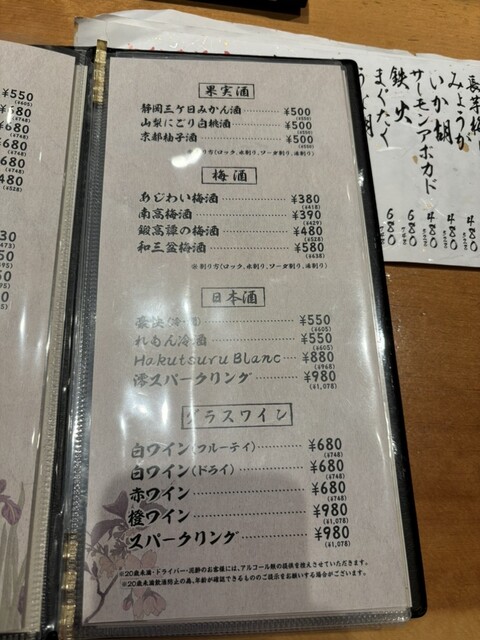 果実酒
静岡三ケ日みかん酒 ¥500
(¥550)
山梨にごり白桃酒 ¥500
(¥550)
京都柚子酒 ¥500
(¥550)
り方(ロック、水割り、ソーダ割り、お湯割り)
梅酒
あじわい梅酒 ¥380
(¥418)
南高梅酒 ¥390
(¥429)
鍛高譚の梅酒 ¥480
(¥528)
和三盆梅酒 ¥580
(¥638)
※割り方(ロック、水割り、ソーダ割り、お湯割り)
日本酒
豪快 ¥550
(¥605)
れもん冷酒 ¥550
(¥605)
Hakutsuru Blanc ¥880
(¥968)
澪スパークリング ¥980
(¥1,078)
グラスワイン
白ワイン(フルーティ) ¥680
(¥748)
白ワイン(ドライ) ¥680
(¥748)
赤ワイン ¥680
(¥748)
橙ワイン ¥980
(¥1,078)
スパークリング ¥980
(¥1,078)
※20歳未満・ドライバー・泥酔のお客様には、アルコール類の提供を控えさせていただきます。
※20歳未満飲酒防止の為、年齢が確認できるもののご提示をお願いする場合がございます。
¥550
(¥605)
¥680
680
680
680
480
(¥528)
30
(473)
50
50
50
みょうが 480
いか明 480
サーモンアボカド 480
鉄火 680
まぐたく 680